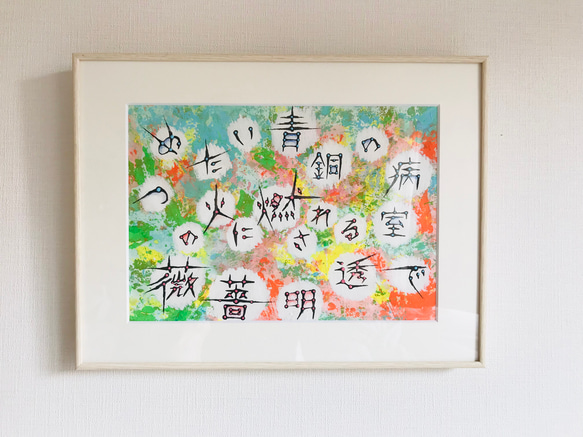 つめたい青銅の病室で透明薔薇の火に燃される